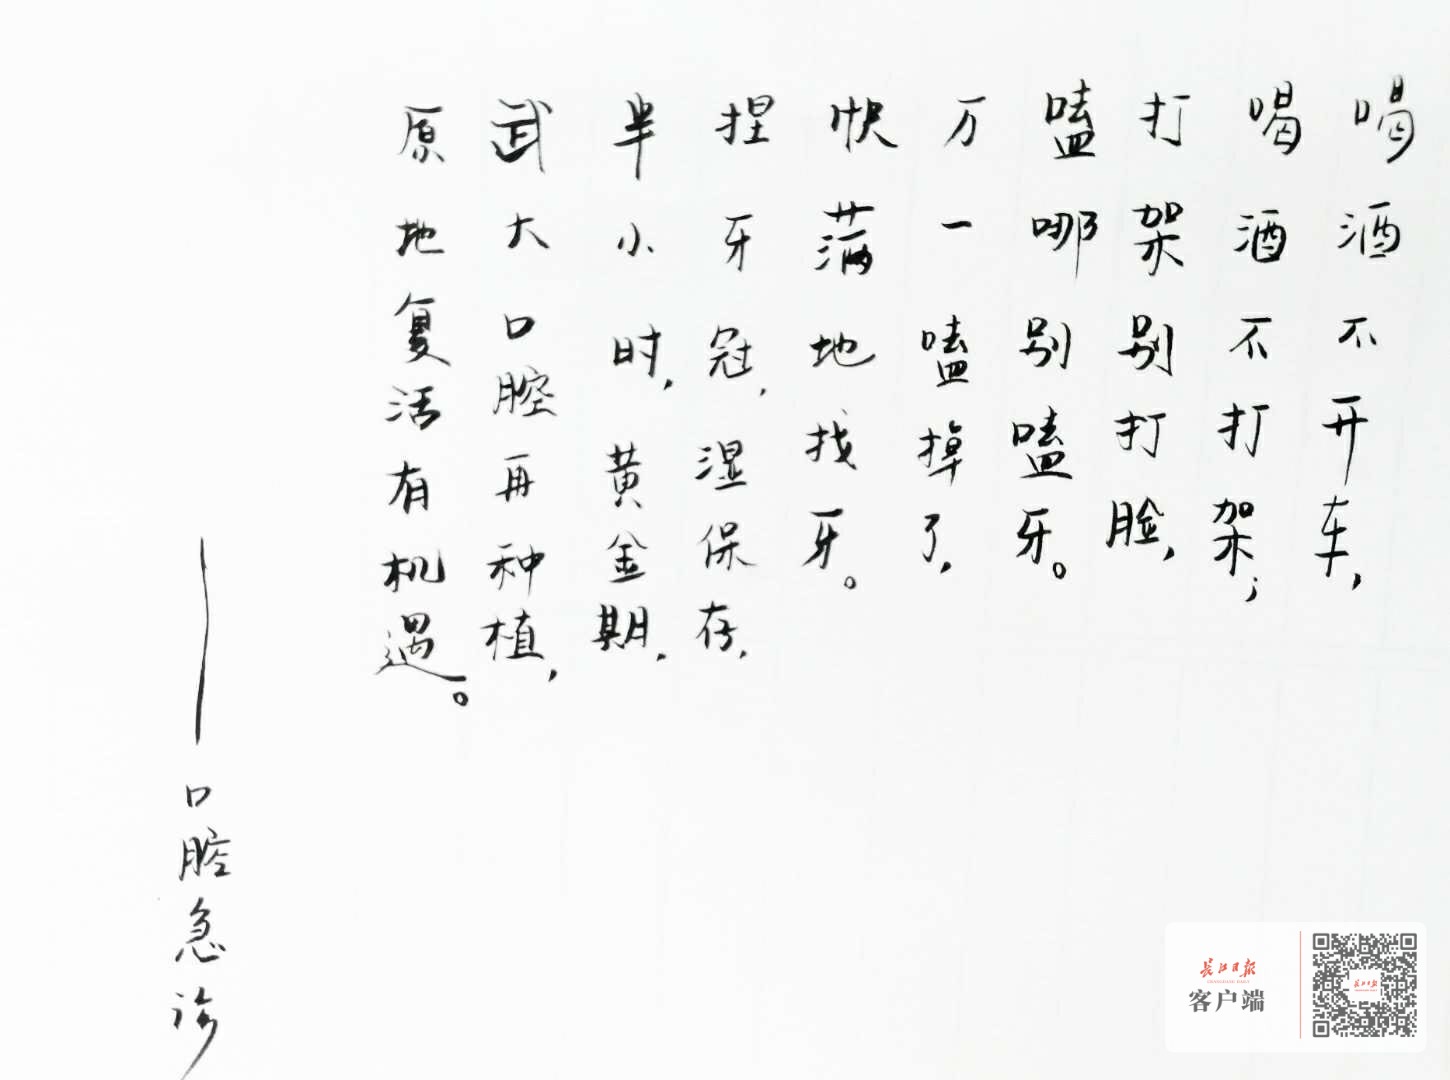 喝酒不开车，
喝酒不打架；
打架别打脸，
嗑哪别嗑牙。
万一嗑掉了，
快满地找牙。
捏牙冠，湿保存，
半小时，黄金期，
武大口腔再种植，
原地复活有机遇。
——口腔急诊
长江日报
CHANGJIANG DAILY
客户端
长江日报